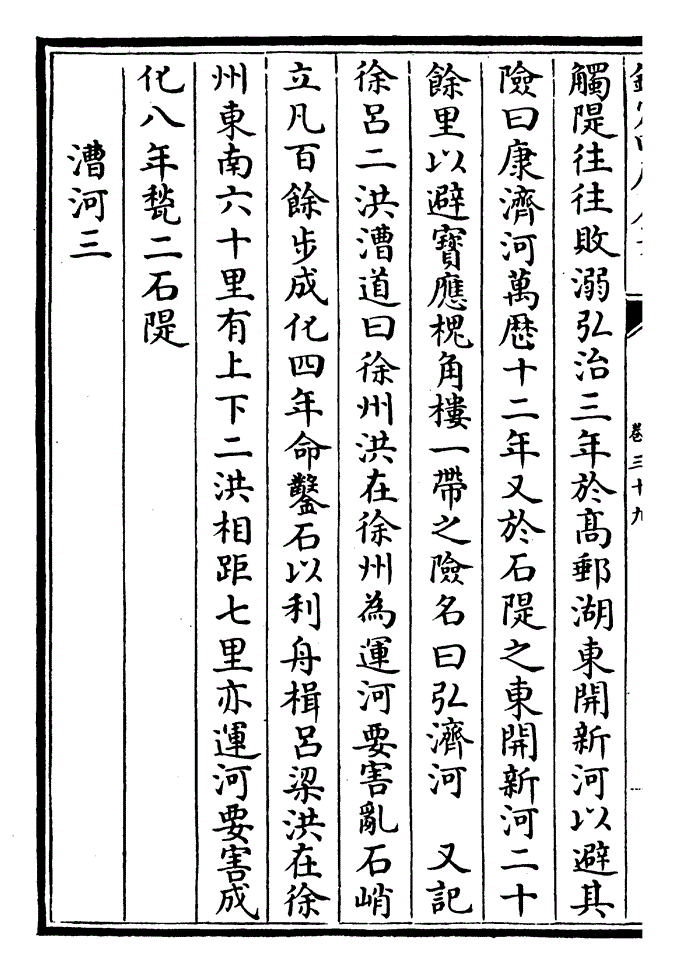 卷三十九
觸隄往往敗溺弘治三年於髙郵湖東開新河以避其
險曰康濟河萬厯十二年又於石隄之東開新河二十
餘里以避寳應槐角樓一帶之險名曰弘濟河　又記
徐呂二洪漕道曰徐州洪在徐州為運河要害亂石峭
立凡百餘步成化四年命鑿石以利舟楫呂梁洪在徐
州東南六十里有上下二洪相距七里亦運河要害成
化八年甃二石隄
漕河三